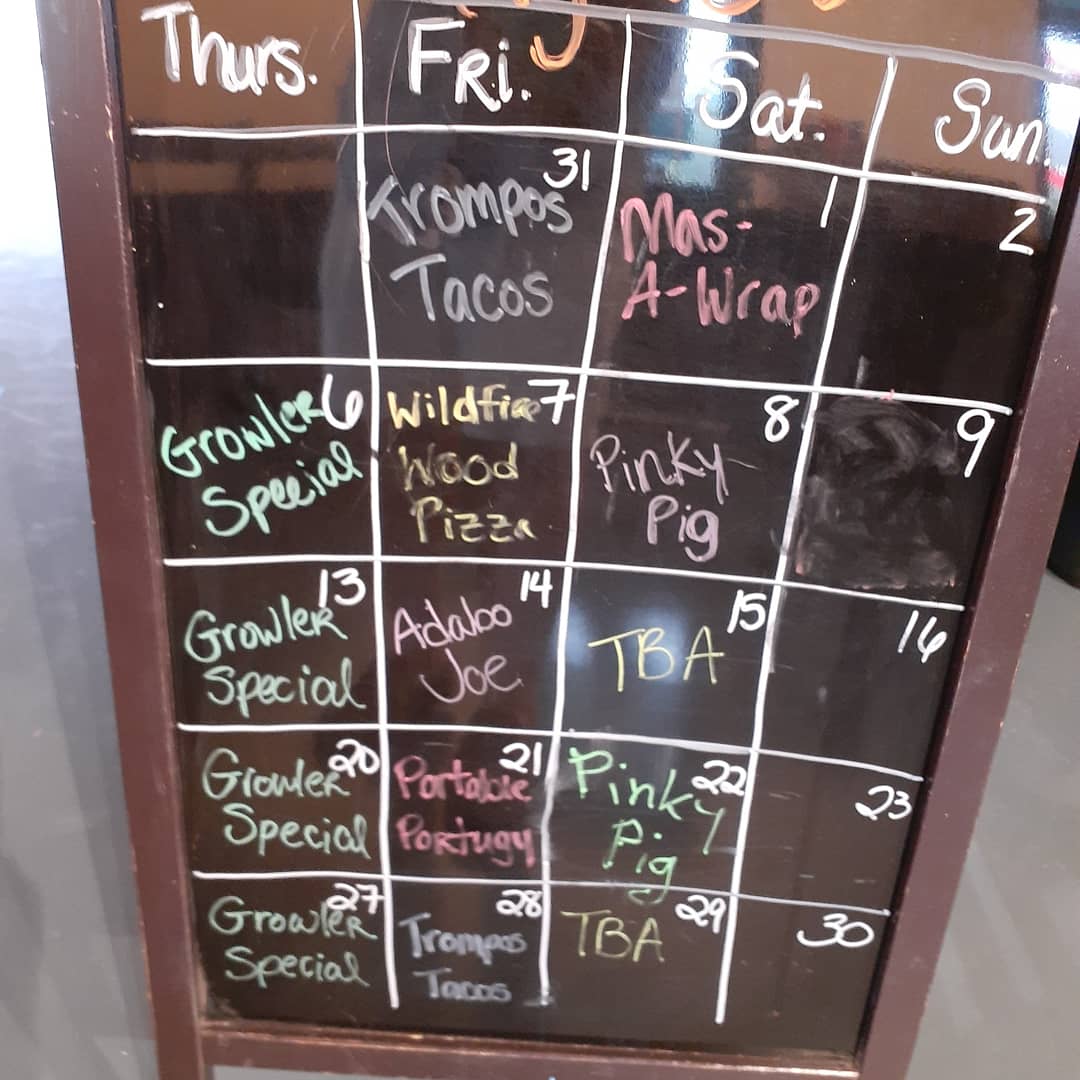 Thurs. Fri. Sat. Sun.
31 1 2
Trompos Mas-
Tacos A-Wrap
6 7 8 9
Growler Wildfire Pinky
Special Wood Pig
Pizza
13 14 15 16
Growler Adabo TBA
Special Joe
20 21 22 23
Growler Portable Pinky
Special Portugy Pig
27 28 29 30
Growler Trompos TBA
Special Tacos